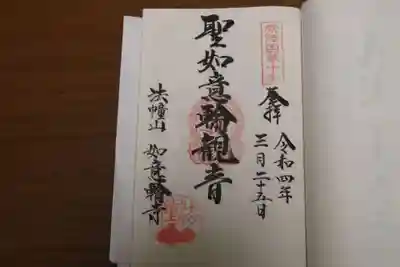 奉拝
令和四年
三月二十五日
聖如意輪観音
法幢山 如意輪寺